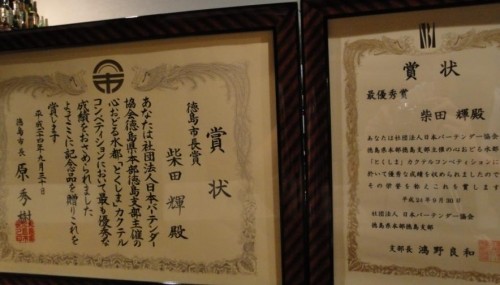 賞状
徳島市長賞
柴田 輝 殿
あなたは社団法人日本バーテンダー
協会徳島県本部徳島支部主催の
心おどる水都「とくしま」カクテル
コンペティションにおいて最も優秀な
成績をおさめられました
よってここに記念品を贈りこれを
賞します
平成二十四年九月三十日
徳島市長 原 秀樹
賞状
最優秀賞
柴田 輝 殿
あなたは社団法人日本バーテンダー協会
徳島県本部徳島支部主催の心おどる水都
「とくしま」カクテルコンペティションに
於いて優秀な成績を収められましたので
その栄誉を称えこれを賞します
平成24年9月30日
社団法人 日本バーテンダー協会
徳島県本部徳島支部
支部長 鴻野良和